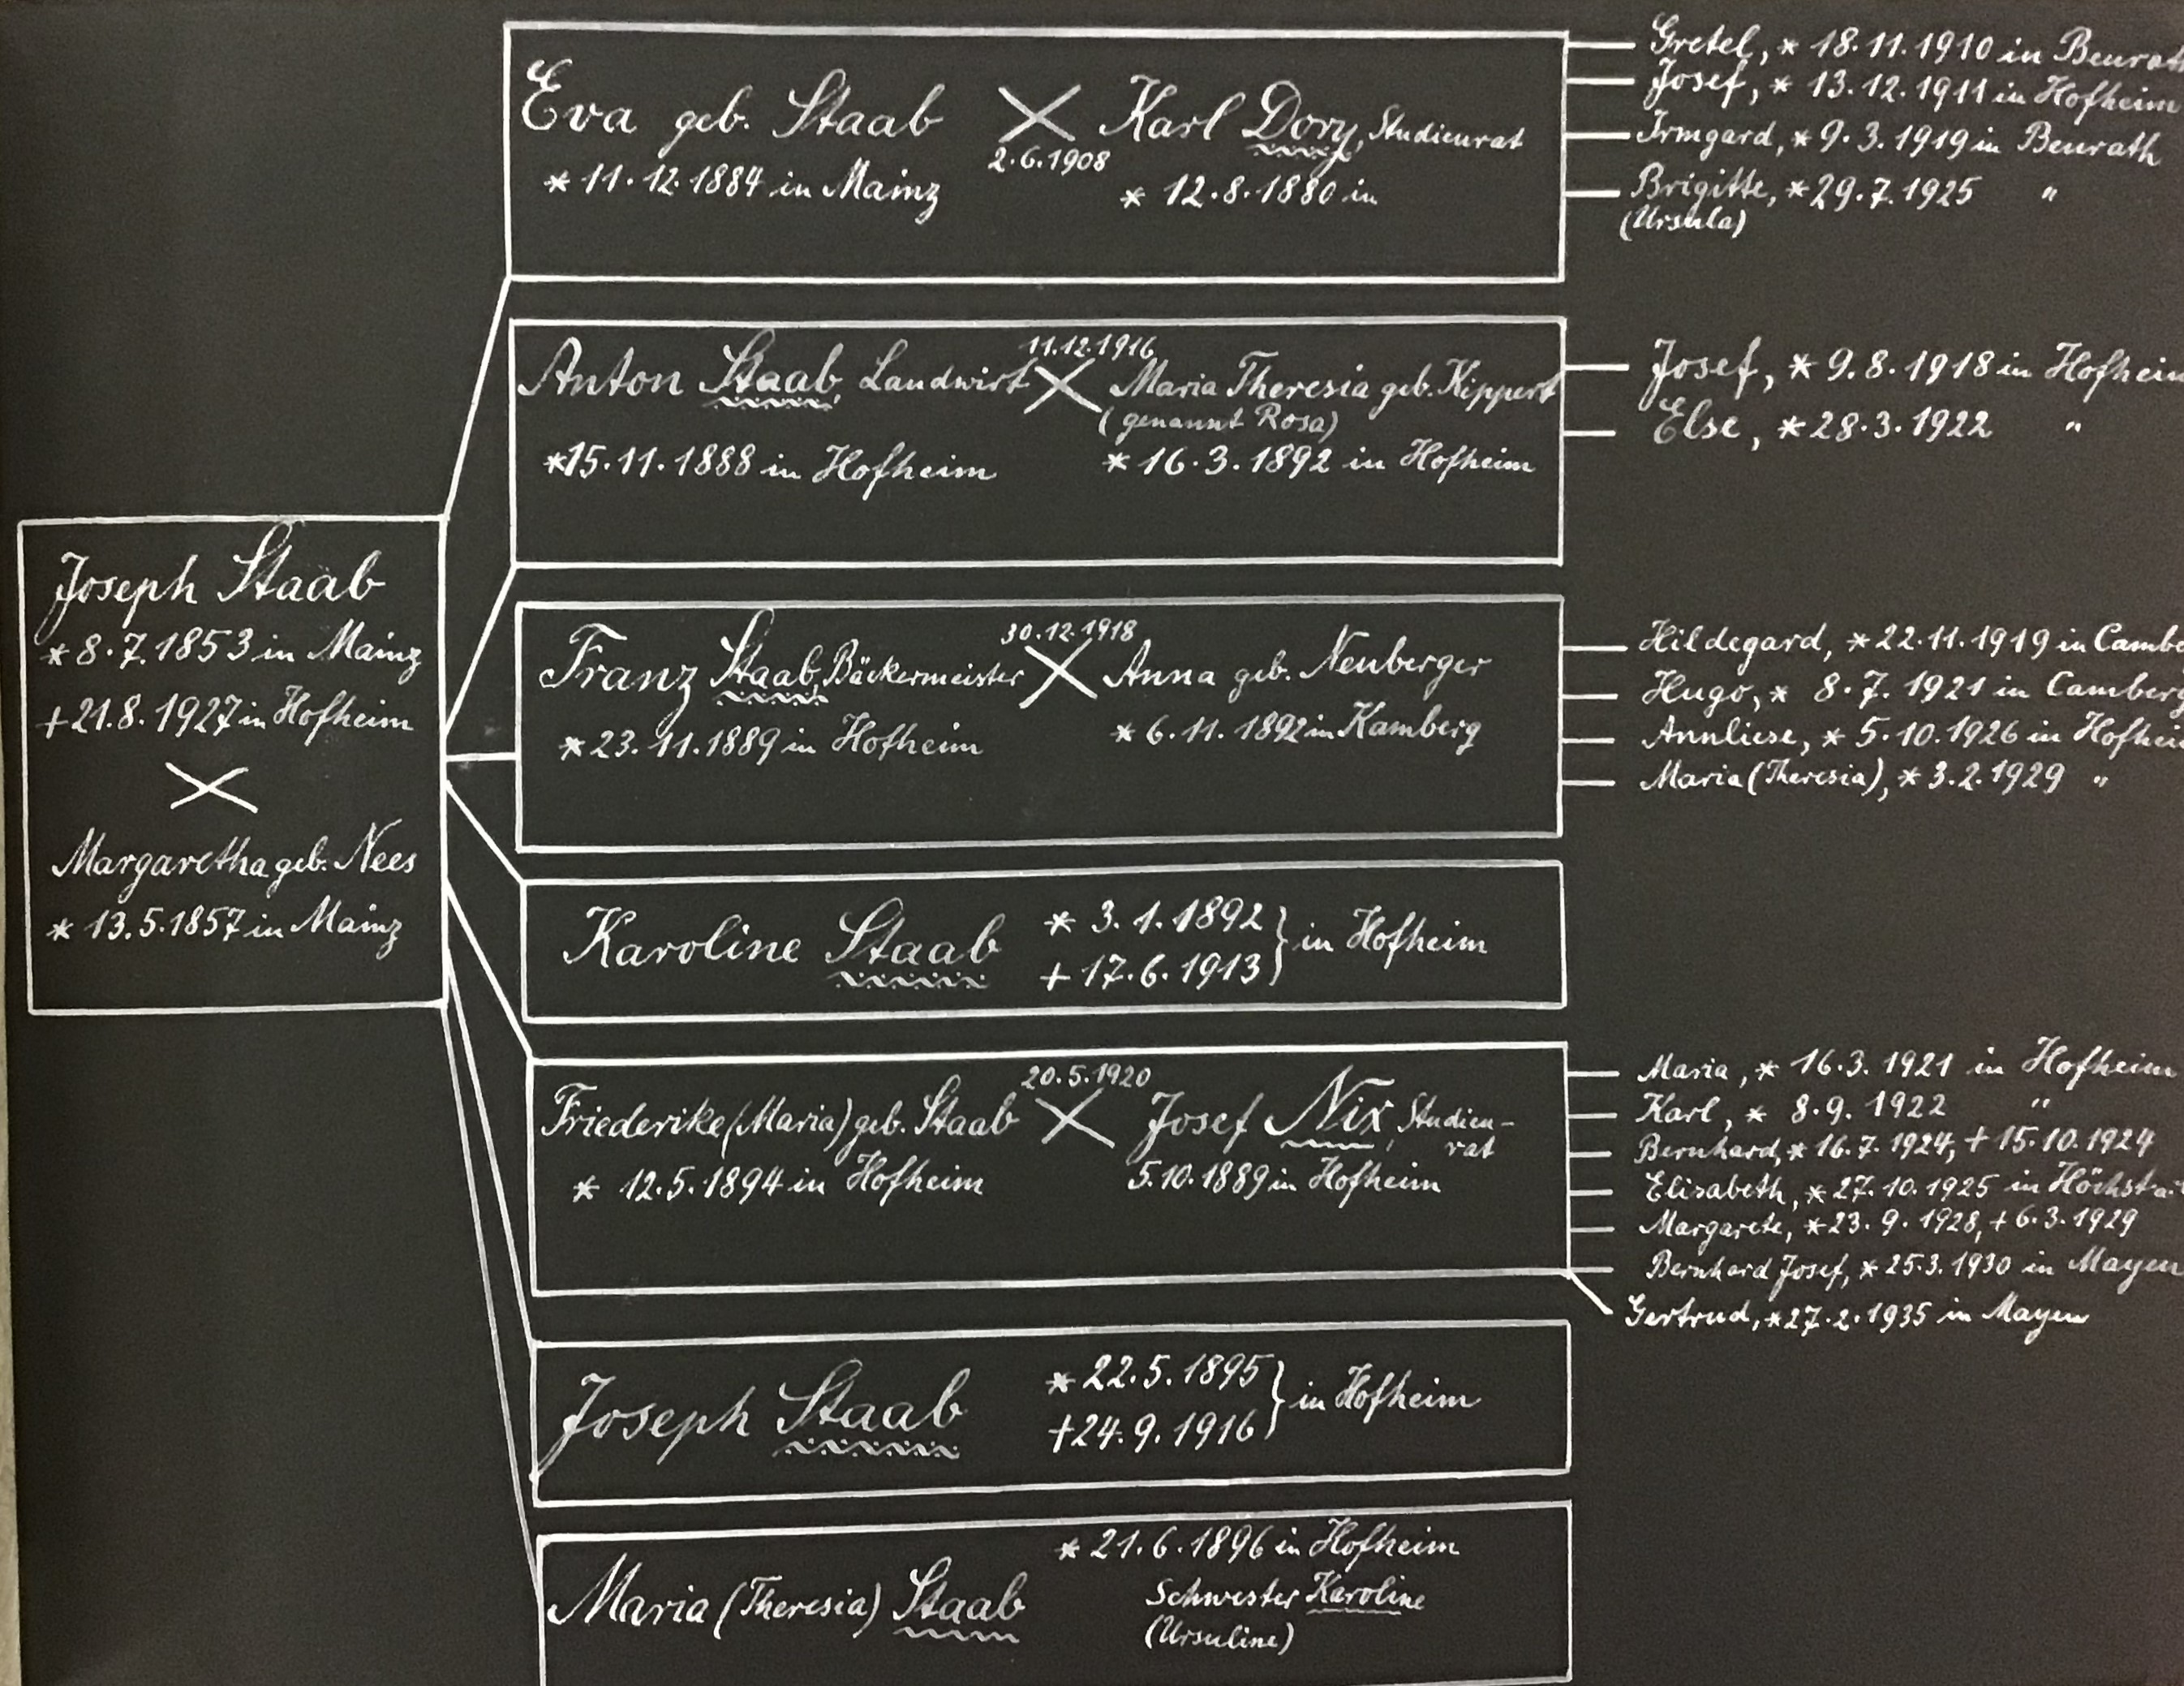 Joseph Staab
* 8.7.1853 in Mainz
+ 21.8.1927 in Hofheim
Margaretha geb. Nees
* 13.5.1857 in Mainz
Eva geb. Staab X Karl Dory, Studienrat
2.6.1908
* 11.12.1884 in Mainz * 12.8.1880 in
Gretel, * 18.11.1910 in
Josef, * 13.12.1911 in Hofheim
Irmgard, * 9.3.1919 in Benrath
Brigitte, * 29.7.1925 "
(Ursula)
11.12.1916
Anton Staab, Landwirt X Maria Theresia geb. Kippert
(genannt Rosa)
* 15.11.1888 in Hofheim * 16.3.1892 in Hofheim
Josef, * 9.8.1918 in Hofheim
Else, * 28.3.1922 "
30.12.1918
Franz Staab, Bäckermeister X Anna geb. Neuberger
* 23.11.1889 in Hofheim * 6.11.1892 in Kamberg
Hildegard, * 22.11.1919 in Cambe
Hugo, * 8.7.1921 in Camberg
Annliese, * 5.10.1926 in Hofhei
Maria (Theresia), * 3.2.1929 "
Karoline Staab * 3.1.1892 } in Hofheim
+ 17.6.1913
20.5.1920
Friederike (Maria) geb. Staab X Josef Nix, Studien-
rat
* 12.5.1894 in Hofheim 5.10.1889 in Hofheim
Maria, * 16.3.1921 in Hofheim
Karl, * 8.9.1922 "
Bernhard, * 16.7.1924, + 15.10.1924
Elisabeth, * 27.10.1925 in
Margarete, * 23.9.1928, + 6.3.1929
Bernhard Josef, * 25.3.1930 in Mayen
Gertrud, * 27.2.1935 in Mayen
Joseph Staab * 22.5.1895 } in Hofheim
+ 24.9.1916
* 21.6.1896 in Hofheim
Maria (Theresia) Staab Schwester Karoline
(Ursuline)